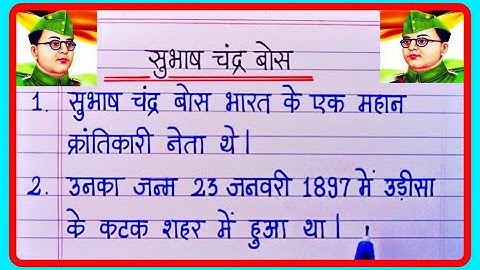 सुभाष चंद्र बोस
1. सुभाष चंद्र बोस भारत के एक महान
क्रांतिकारी नेता थे|
2. उनका जन्म 23 जनवरी 1897 में उड़ीसा
के कटक शहर में हुआ था|